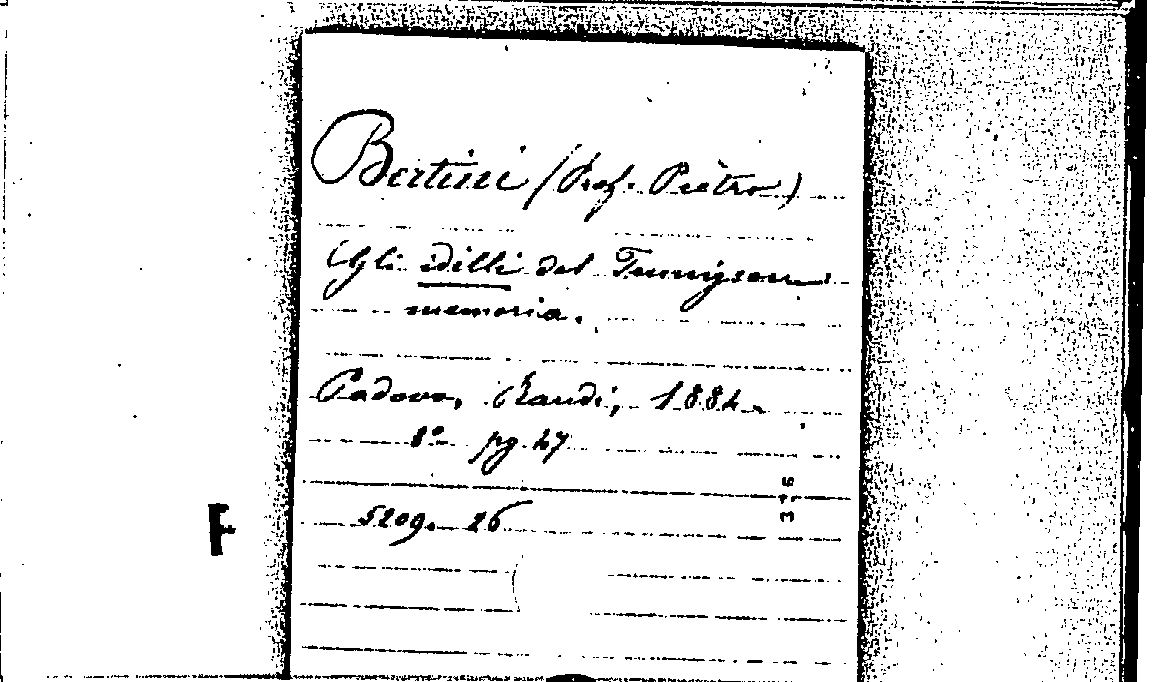 Bertini (Prof. Pietro)
Gli idilli del Tennyson
memoria.
Padova, Randi, 1884.
8º pg. 27
5209. 26
F